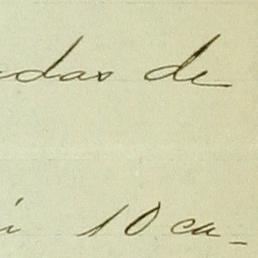 das de
10 ca-